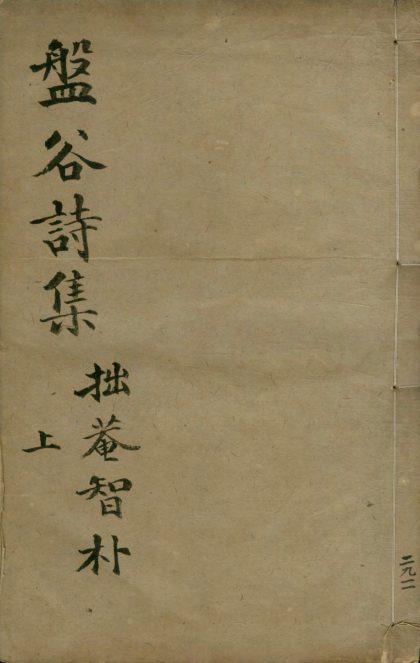 盤谷詩集
拙菴智朴
上
二九二